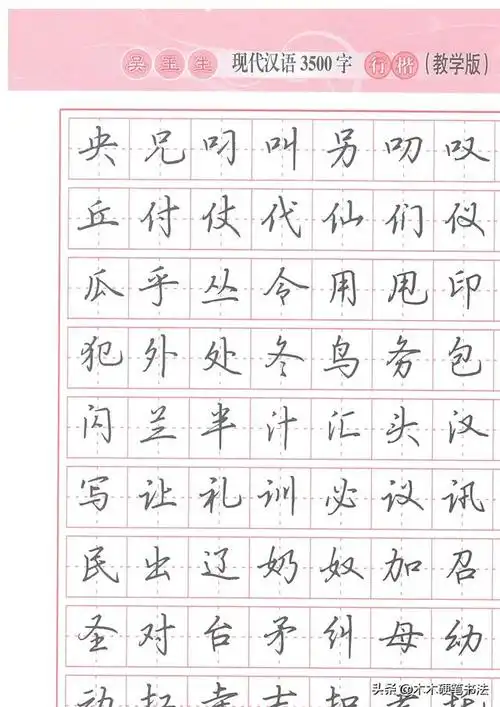 吴玉生 现代汉语3500字 行楷 (教学版)
央兄叼叫另叨叹
丘付仗代仙们仪
瓜乎丛令用甩印
犯外处冬鸟务包
闪兰半汁汇头汉
写让礼训必议讯
民出辽奶奴加召
圣对台矛纠母幼
头条@木木硬笔书法